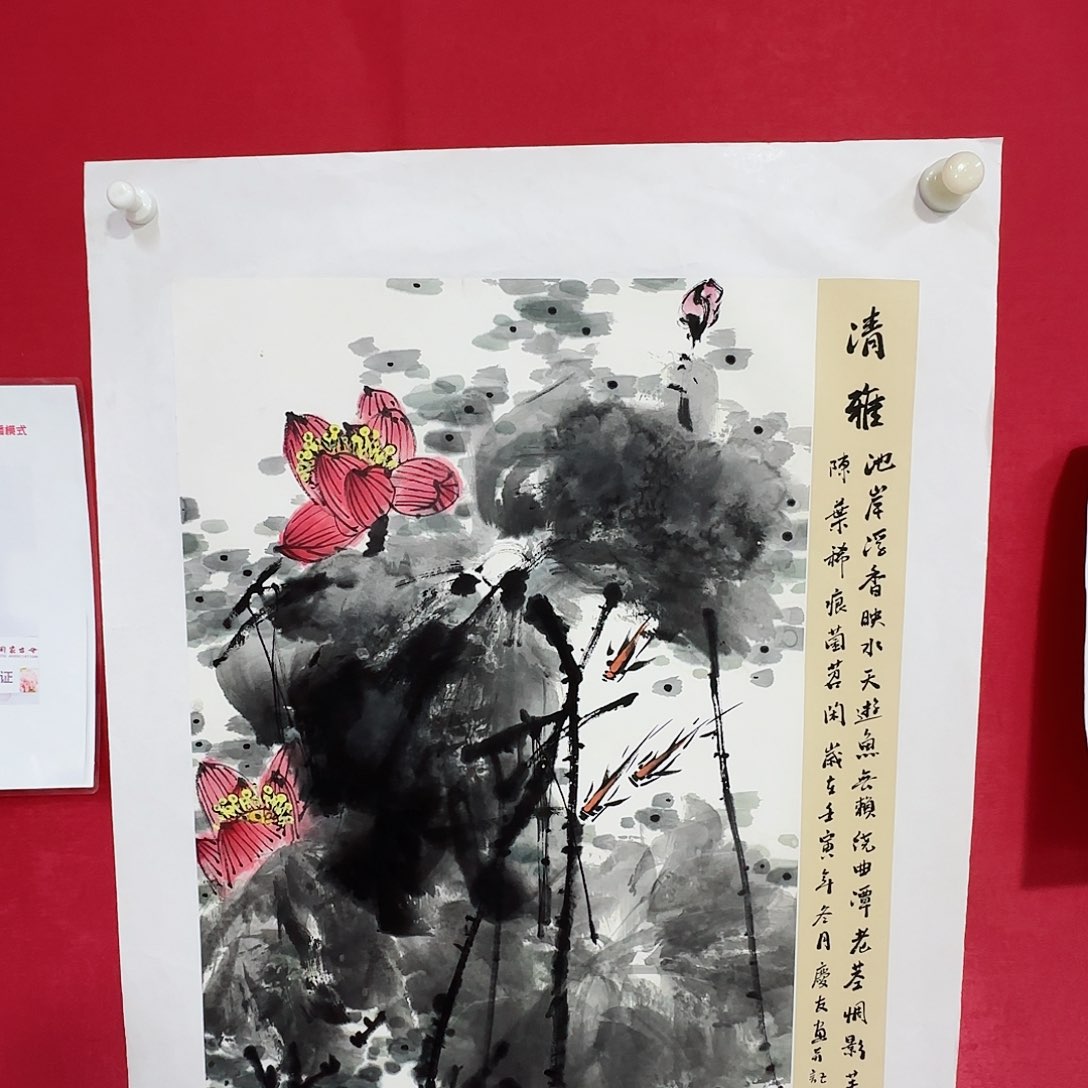 清雅
池岸浮香映水天遊魚無賴繞曲潭老莖惆影
陳葉稀痕菌萏闲歲在壬寅年冬月慶友畫并記
播模式
证